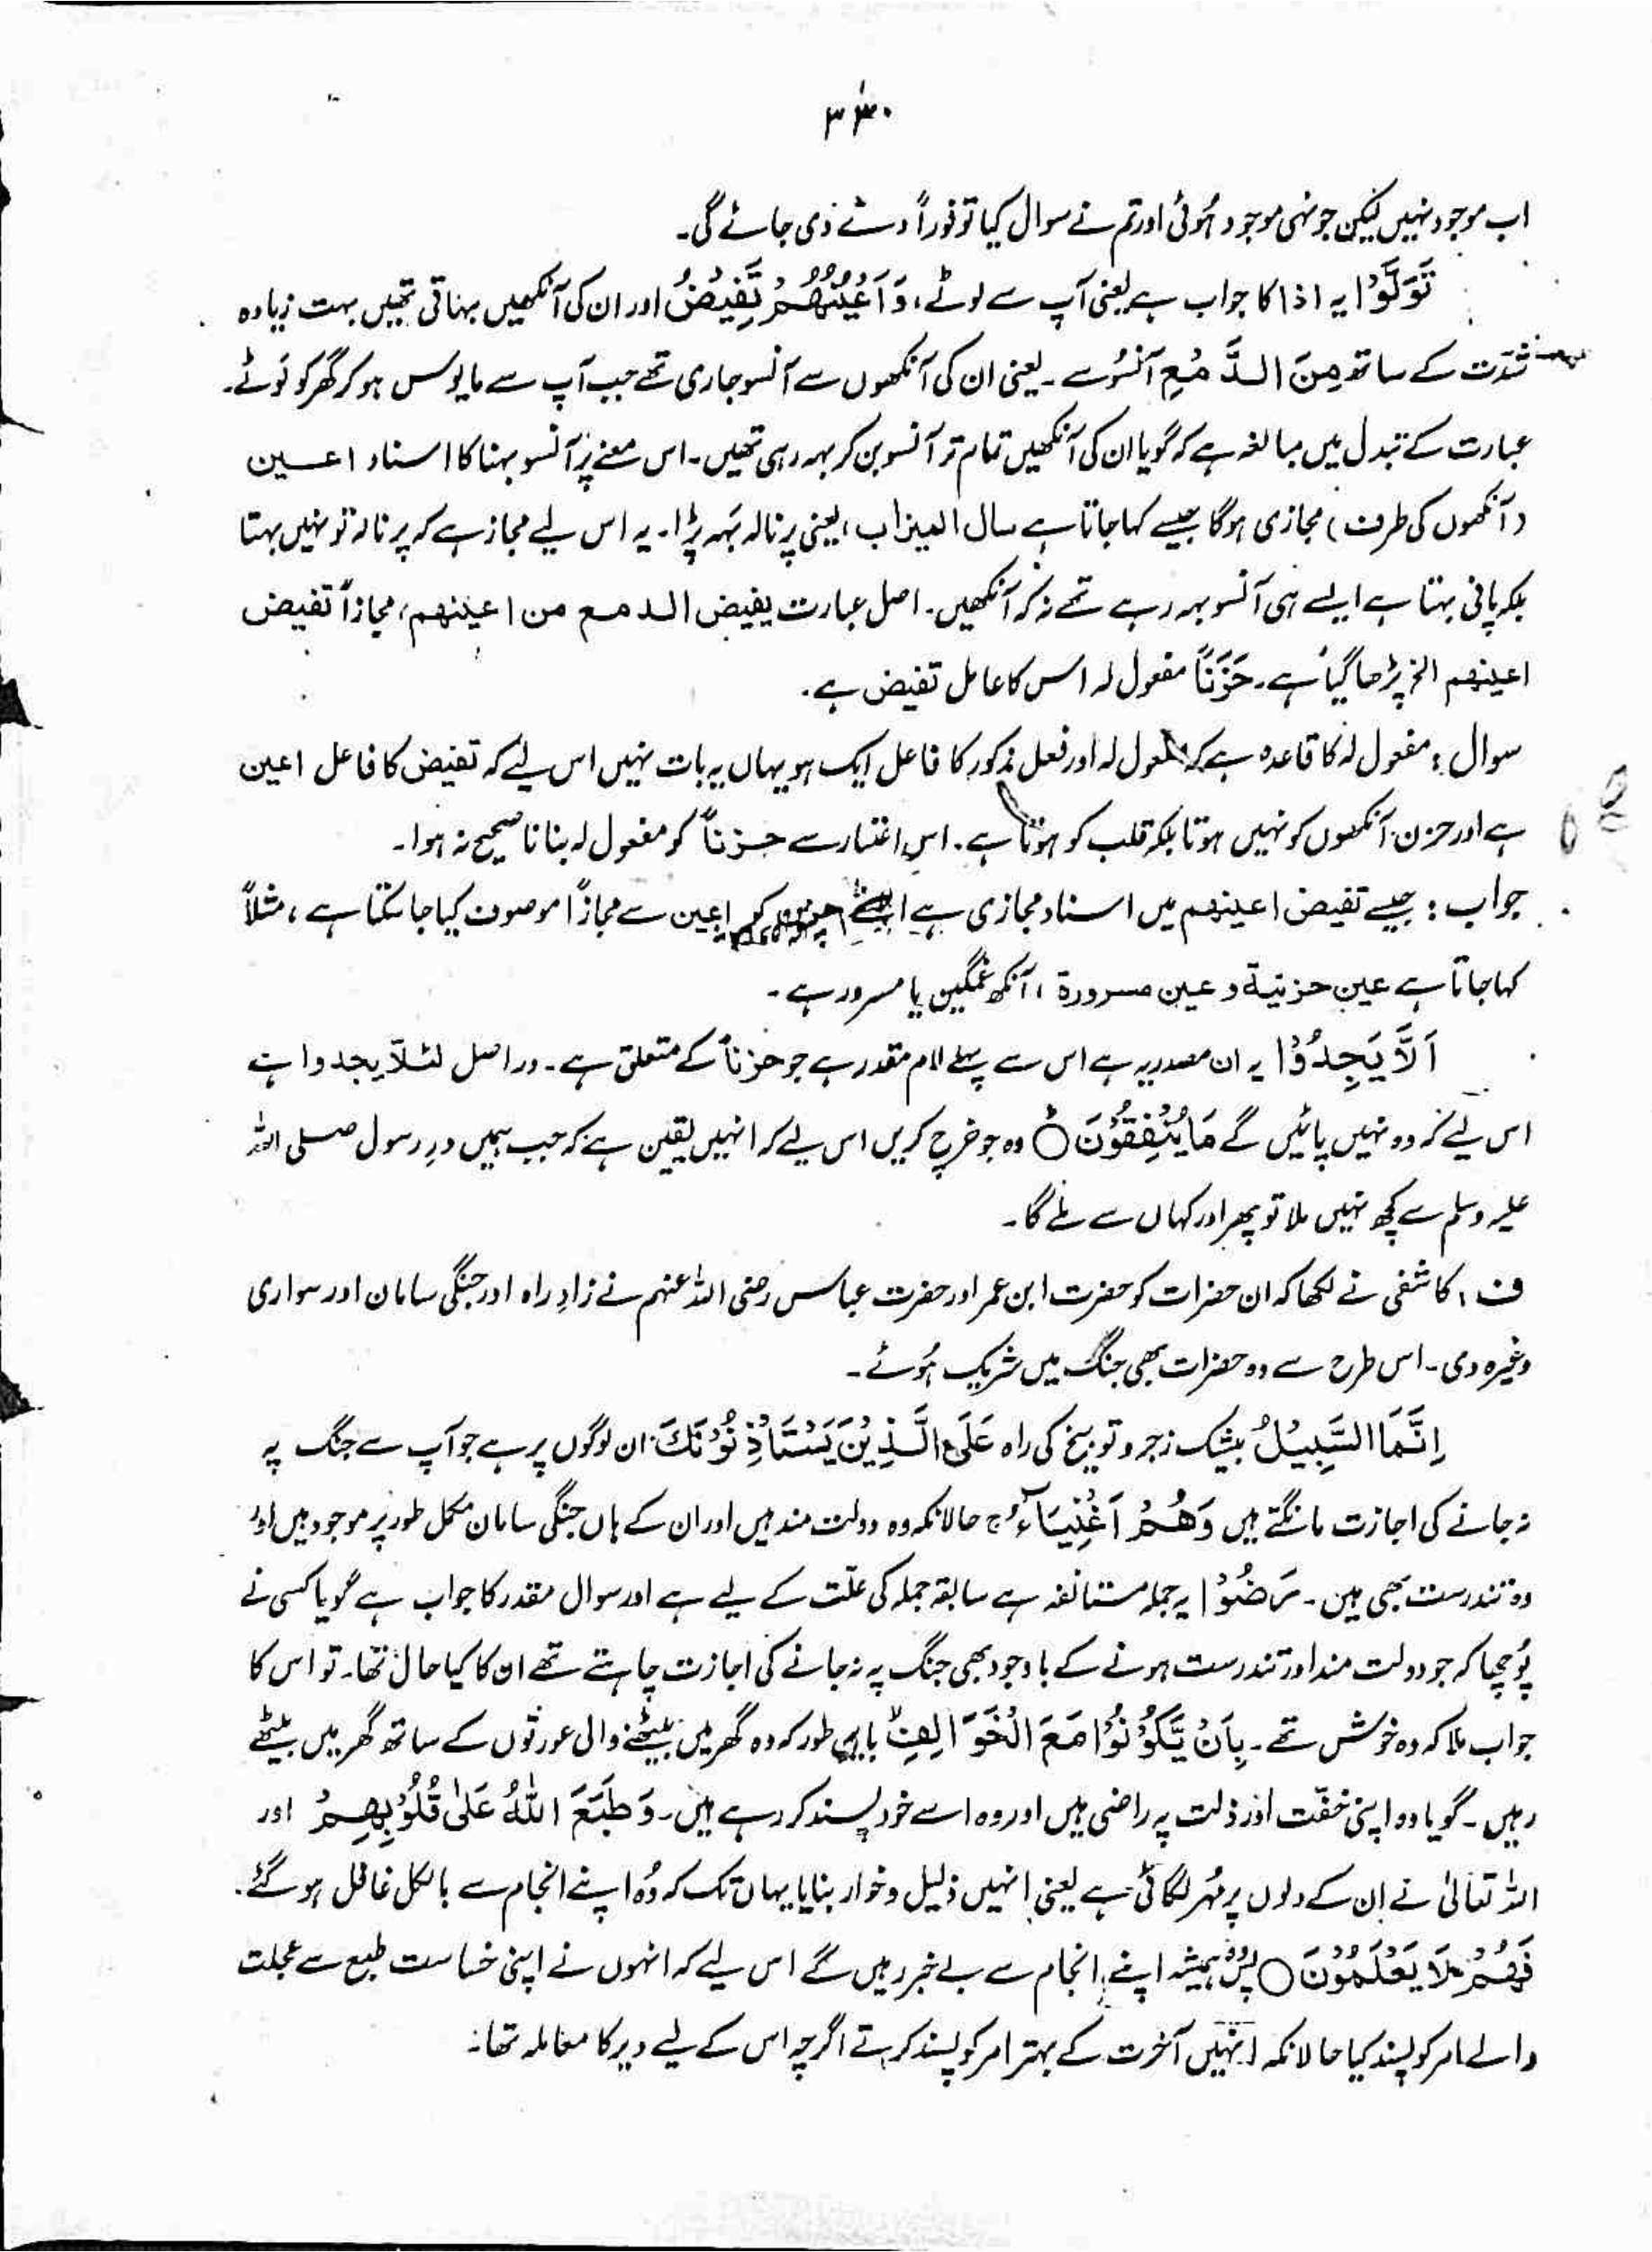 ۳۳۰
اب موجود نہیں لیکن جونہی موجود ہُوئی اور تم نے سوال کیا تو فوراً دے دی جائے گی۔
تَوَلَّوْا یہ اذا کا جواب ہے یعنی آپ سے لوٹے، وَاَعْیُنُهُمْ تَفِیْضُ اور ان کی آنکھیں بہاتی تھیں بہت زیادہ
شدّت کے ساتھ مِنَ الدَّمْعِ آنسُو سے۔ یعنی ان کی آنکھوں سے آنسو جاری تھے جب آپ سے مایوس ہو کر گھر کو لَوٹے۔
عبارت کے تبدل میں مبالغہ ہے کہ گویا ان کی آنکھیں تمام تر آنسو بن کر بہہ رہی تھیں۔ اس معنے پر آنسو بہنا کا اسناد اعین
(آنکھوں کی طرف) مجازی ہوگا جیسے کہا جاتا ہے سال المیزاب، یعنی پرنالہ بَہہ پڑا۔ یہ اس لیے مجاز ہے کہ پرنالہ تو نہیں بہتا
بلکہ پانی بہتا ہے ایسے ہی آنسو بہہ رہے تھے نہ کہ آنکھیں۔ اصل عبارت یفیض الدمع من اعینهم، مجازاً تفیض
اعینهم الخ پڑھا گیا ہے۔ حَزَنًا مفعول لہ اس کا عامل تفیض ہے۔
سوال: مفعول لہٗ کا قاعدہ ہے کہ مفعول لہ اور فعل مذکور کا فاعل ایک ہو یہاں یہ بات نہیں اس لیے کہ تفیض کا فاعل اعین
ہے اور حزن آنکھوں کو نہیں ہوتا بلکہ قلب کو ہوتا ہے۔ اس اعتبار سے حزناً کو مفعول لہ بنانا صحیح نہ ہوا۔
جواب: جیسے تفیض اعینهم میں اسناد مجازی ہے ایسے کو اعین سے مجازاً موصوف کیا جا سکتا ہے، مثلاً
کہا جاتا ہے عین حزنیة و عین مسرورة، آنکھ غمگین یا مسرور ہے۔
اَلَّا یَجِدُوْا یہ ان مصدریہ ہے اس سے پہلے لام مقدر ہے جو حزناً کے متعلق ہے۔ دراصل لئلّا یجدوا ہے
اس لیے کہ وہ نہیں پائیں گے مَا یُنْفِقُوْنَ ○ وہ جو خرچ کریں اس لیے کہ انہیں یقین ہے کہ جب ہمیں درِ رسول صلی اللہ
علیہ وسلم سے کچھ نہیں ملا تو پھر اور کہاں سے ملے گا۔
ف: کاشفی نے لکھا کہ ان حضرات کو حضرت ابن عمر اور حضرت عباس رضی اللہ عنہم نے زادِ راہ اور جنگی سامان اور سواری
وغیرہ دی۔ اس طرح سے وہ حضرات بھی جنگ میں شریک ہُوئے۔
اِنَّمَا السَّبِیْلُ بیشک زجر و توبیخ کی راہ عَلَی الَّذِیْنَ یَسْتَاْذِنُوْنَكَ ان لوگوں پر ہے جو آپ سے جنگ پہ
نہ جانے کی اجازت مانگتے ہیں وَهُمْ اَغْنِیَآءُ ج حالانکہ وہ دولت مند ہیں اور ان کے ہاں جنگی سامان مکمل طور پر موجود ہیں اور
وہ تندرست بھی ہیں۔ رَضُوْا یہ جملہ مستانفہ ہے سابقہ جملہ کی علّت کے لیے ہے اور سوال مقدر کا جواب ہے گویا کسی نے
پُوچھا کہ جو دولت مند اور تندرست ہونے کے باوجود بھی جنگ پہ نہ جانے کی اجازت چاہتے تھے ان کا کیا حال تھا۔ تو اس کا
جواب ملا کہ وہ خوش تھے۔ بِاَنْ یَّكُوْنُوْا مَعَ الْخَوَالِفِ بایں طور کہ وہ گھر میں بیٹھنے والی عورتوں کے ساتھ گھر میں بیٹھے
رہیں۔ گویا وہ اپنی خفّت اور ذلت پہ راضی ہیں اور وہ اسے خود پسند کر رہے ہیں۔ وَطَبَعَ اللّٰهُ عَلٰی قُلُوْبِهِمْ اور
اللہ تعالیٰ نے ان کے دلوں پر مُہر لگائی ہے یعنی انہیں ذلیل و خوار بنایا یہاں تک کہ وُہ اپنے انجام سے بالکل غافل ہو گئے۔
فَهُمْ لَا یَعْلَمُوْنَ ○ پس ہمیشہ اپنے انجام سے بے خبر رہیں گے اس لیے کہ انہوں نے اپنی خساست طبع سے عجلت
والے امر کو پسند کیا حالانکہ انہیں آخرت کے بہتر امر کو پسند کرتے اگرچہ اس کے لیے دیر کا معاملہ تھا۔